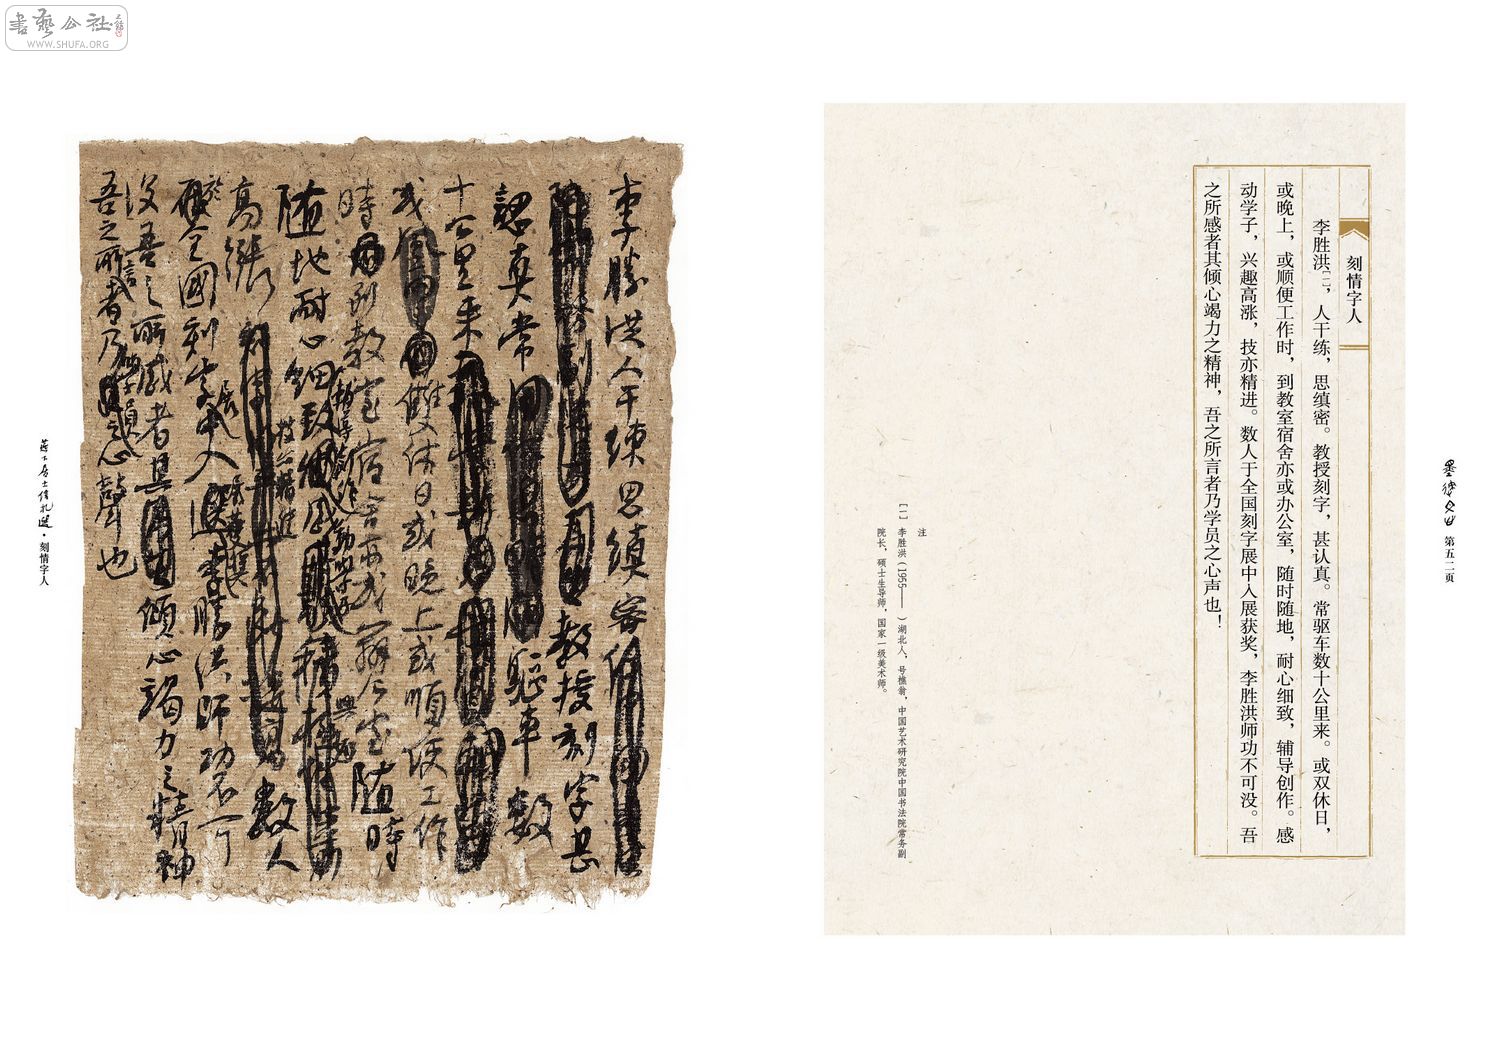 書藝公社
WWW.SHUFA.ORG
第五二页
刻情字人
李胜洪[一]，人干练，思缜密。教授刻字，甚认真。常驱车数十公里来。或双休日，
或晚上，或顺便工作时，到教室宿舍亦或办公室，随时随地，耐心细致，辅导创作。感
动学子，兴趣高涨，技亦精进。数人于全国刻字展中入展获奖，李胜洪师功不可没。吾
之所感者其倾心竭力之精神，吾之所言者乃学员之心声也！
注
[一] 李胜洪（1955—— ）湖北人，号樵翁，中国艺术研究院中国书法院常务副
院长，硕士生导师，国家一级美术师。
李勝洪人干练思缜密
教授刻字甚
認真常驅車數
十公里来
或雙休日或晚上或順便工作
時到教室宿舍亦或辦公室随時
随地耐心細致
輔導創作感動學子
興趣
技亦精進
高漲
數人
於全國刻字展中入展獲獎李勝洪師功不可
没吾之所感者其傾心竭力之精神
吾之所言者乃學員之心聲也
刻情字人